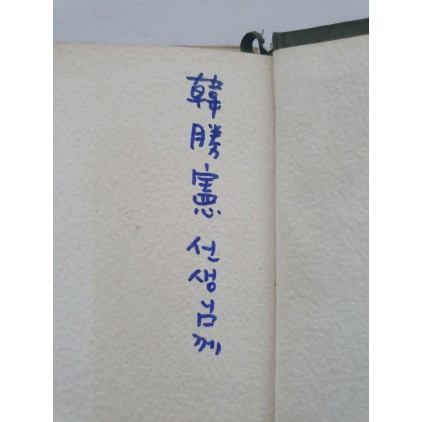 韓勝憲 선생님께